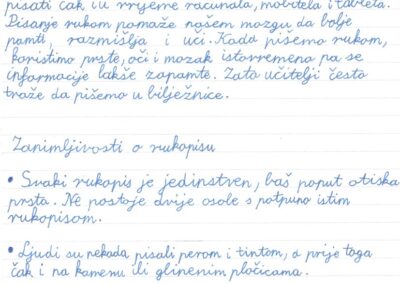 pisati čak i u vrijeme računala, mobitela i tableta.
Pisanje rukom pomaže našem mozgu da bolje
pamti, razmišlja i uči. Kada pišemo rukom,
koristimo prste, oči i mozak istovremeno pa se
informacije lakše zapamte. Zato učitelji često
traže da pišemo u bilježnice.
Zanimljivosti o rukopisu
• Svaki rukopis je jedinstven, baš poput otiska
prsta. Ne postoje dvije osobe s potpuno istim
rukopisom.
• Ljudi su nekada pisali perom i tintom, a prije toga
čak i na kamenu ili glinenim pločicama.